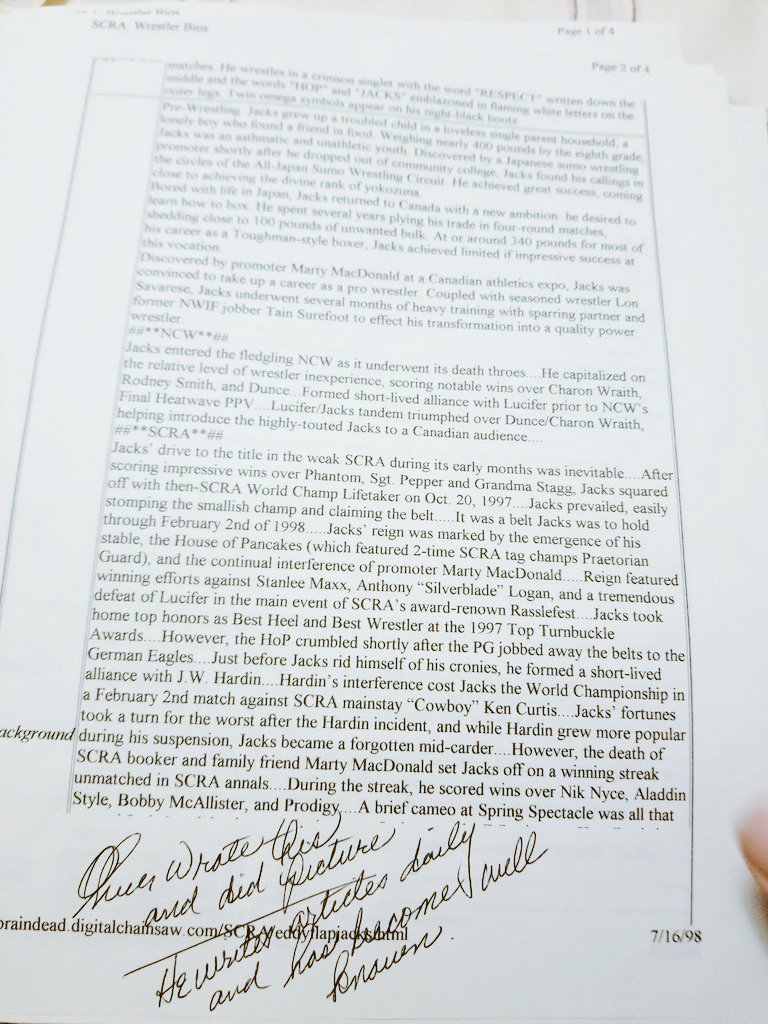 SCRA Wrestler Bios
Page 1 of 4
Page 2 of 4
matches. He wrestles in a crimson singlet with the word "RESPECT" written down the
middle and the words "HOP" and "JACKS" emblazoned in flaming white letters on the
outer legs. Twin omega symbols appear on his night-black boots.
Pre-Wrestling: Jacks grew up a troubled child in a loveless single parent household, a
lonely boy who found a friend in food. Weighing nearly 400 pounds by the eighth grade,
Jacks was an asthmatic and unathletic youth. Discovered by a Japanese sumo wrestling
promoter shortly after he dropped out of community college, Jacks found his callings in
the circles of the All-Japan Sumo Wrestling Circuit. He achieved great success, coming
close to achieving the divine rank of yokozuna.
Bored with life in Japan, Jacks returned to Canada with a new ambition: he desired to
learn how to box. He spent several years plying his trade in four-round matches,
shedding close to 100 pounds of unwanted bulk. At or around 340 pounds for most of
his career as a Toughman-style boxer, Jacks achieved limited if impressive success at
this vocation.
Discovered by promoter Marty MacDonald at a Canadian athletics expo, Jacks was
convinced to take up a career as a pro wrestler. Coupled with seasoned wrestler Lon
Savarese, Jacks underwent several months of heavy training with sparring partner and
former NWIF jobber Tain Surefoot to effect his transformation into a quality power
wrestler.
##**NCW**##
Jacks entered the fledgling NCW as it underwent its death throes....He capitalized on
the relative level of wrestler inexperience, scoring notable wins over Charon Wraith,
Rodney Smith, and Dunce...Formed short-lived alliance with Lucifer prior to NCW's
Final Heatwave PPV....Lucifer/Jacks tandem triumphed over Dunce/Charon Wraith,
helping introduce the highly-touted Jacks to a Canadian audience....
##**SCRA**##
Jacks' drive to the title in the weak SCRA during its early months was inevitable....After
scoring impressive wins over Phantom, Sgt. Pepper and Grandma Stagg, Jacks squared
off with then-SCRA World Champ Lifetaker on Oct. 20, 1997....Jacks prevailed, easily
stomping the smallish champ and claiming the belt.....It was a belt Jacks was to hold
through February 2nd of 1998.....Jacks' reign was marked by the emergence of his
stable, the House of Pancakes (which featured 2-time SCRA tag champs Praetorian
Guard), and the continual interference of promoter Marty MacDonald.....Reign featured
winning efforts against Stanlee Maxx, Anthony “Silverblade” Logan, and a tremendous
defeat of Lucifer in the main event of SCRA's award-renown Rasslefest....Jacks took
home top honors as Best Heel and Best Wrestler at the 1997 Top Turnbuckle
Awards....However, the HoP crumbled shortly after the PG jobbed away the belts to the
German Eagles....Just before Jacks rid himself of his cronies, he formed a short-lived
alliance with J.W. Hardin....Hardin's interference cost Jacks the World Championship in
a February 2nd match against SCRA mainstay “Cowboy” Ken Curtis....Jacks' fortunes
took a turn for the worst after the Hardin incident, and while Hardin grew more popular
ackground during his suspension, Jacks became a forgotten mid-carder....However, the death of
SCRA booker and family friend Marty MacDonald set Jacks off on a winning streak
unmatched in SCRA annals....During the streak, he scored wins over Nik Nyce, Aladdin
Style, Bobby McAllister, and Prodigy....A brief cameo at Spring Spectacle was all that
Oliver Wrote this
and did picture
He writes articles daily
and has become well
known
braindead.digitalchainsaw.com/SCRA/eddyflapjacks.html
7/16/98